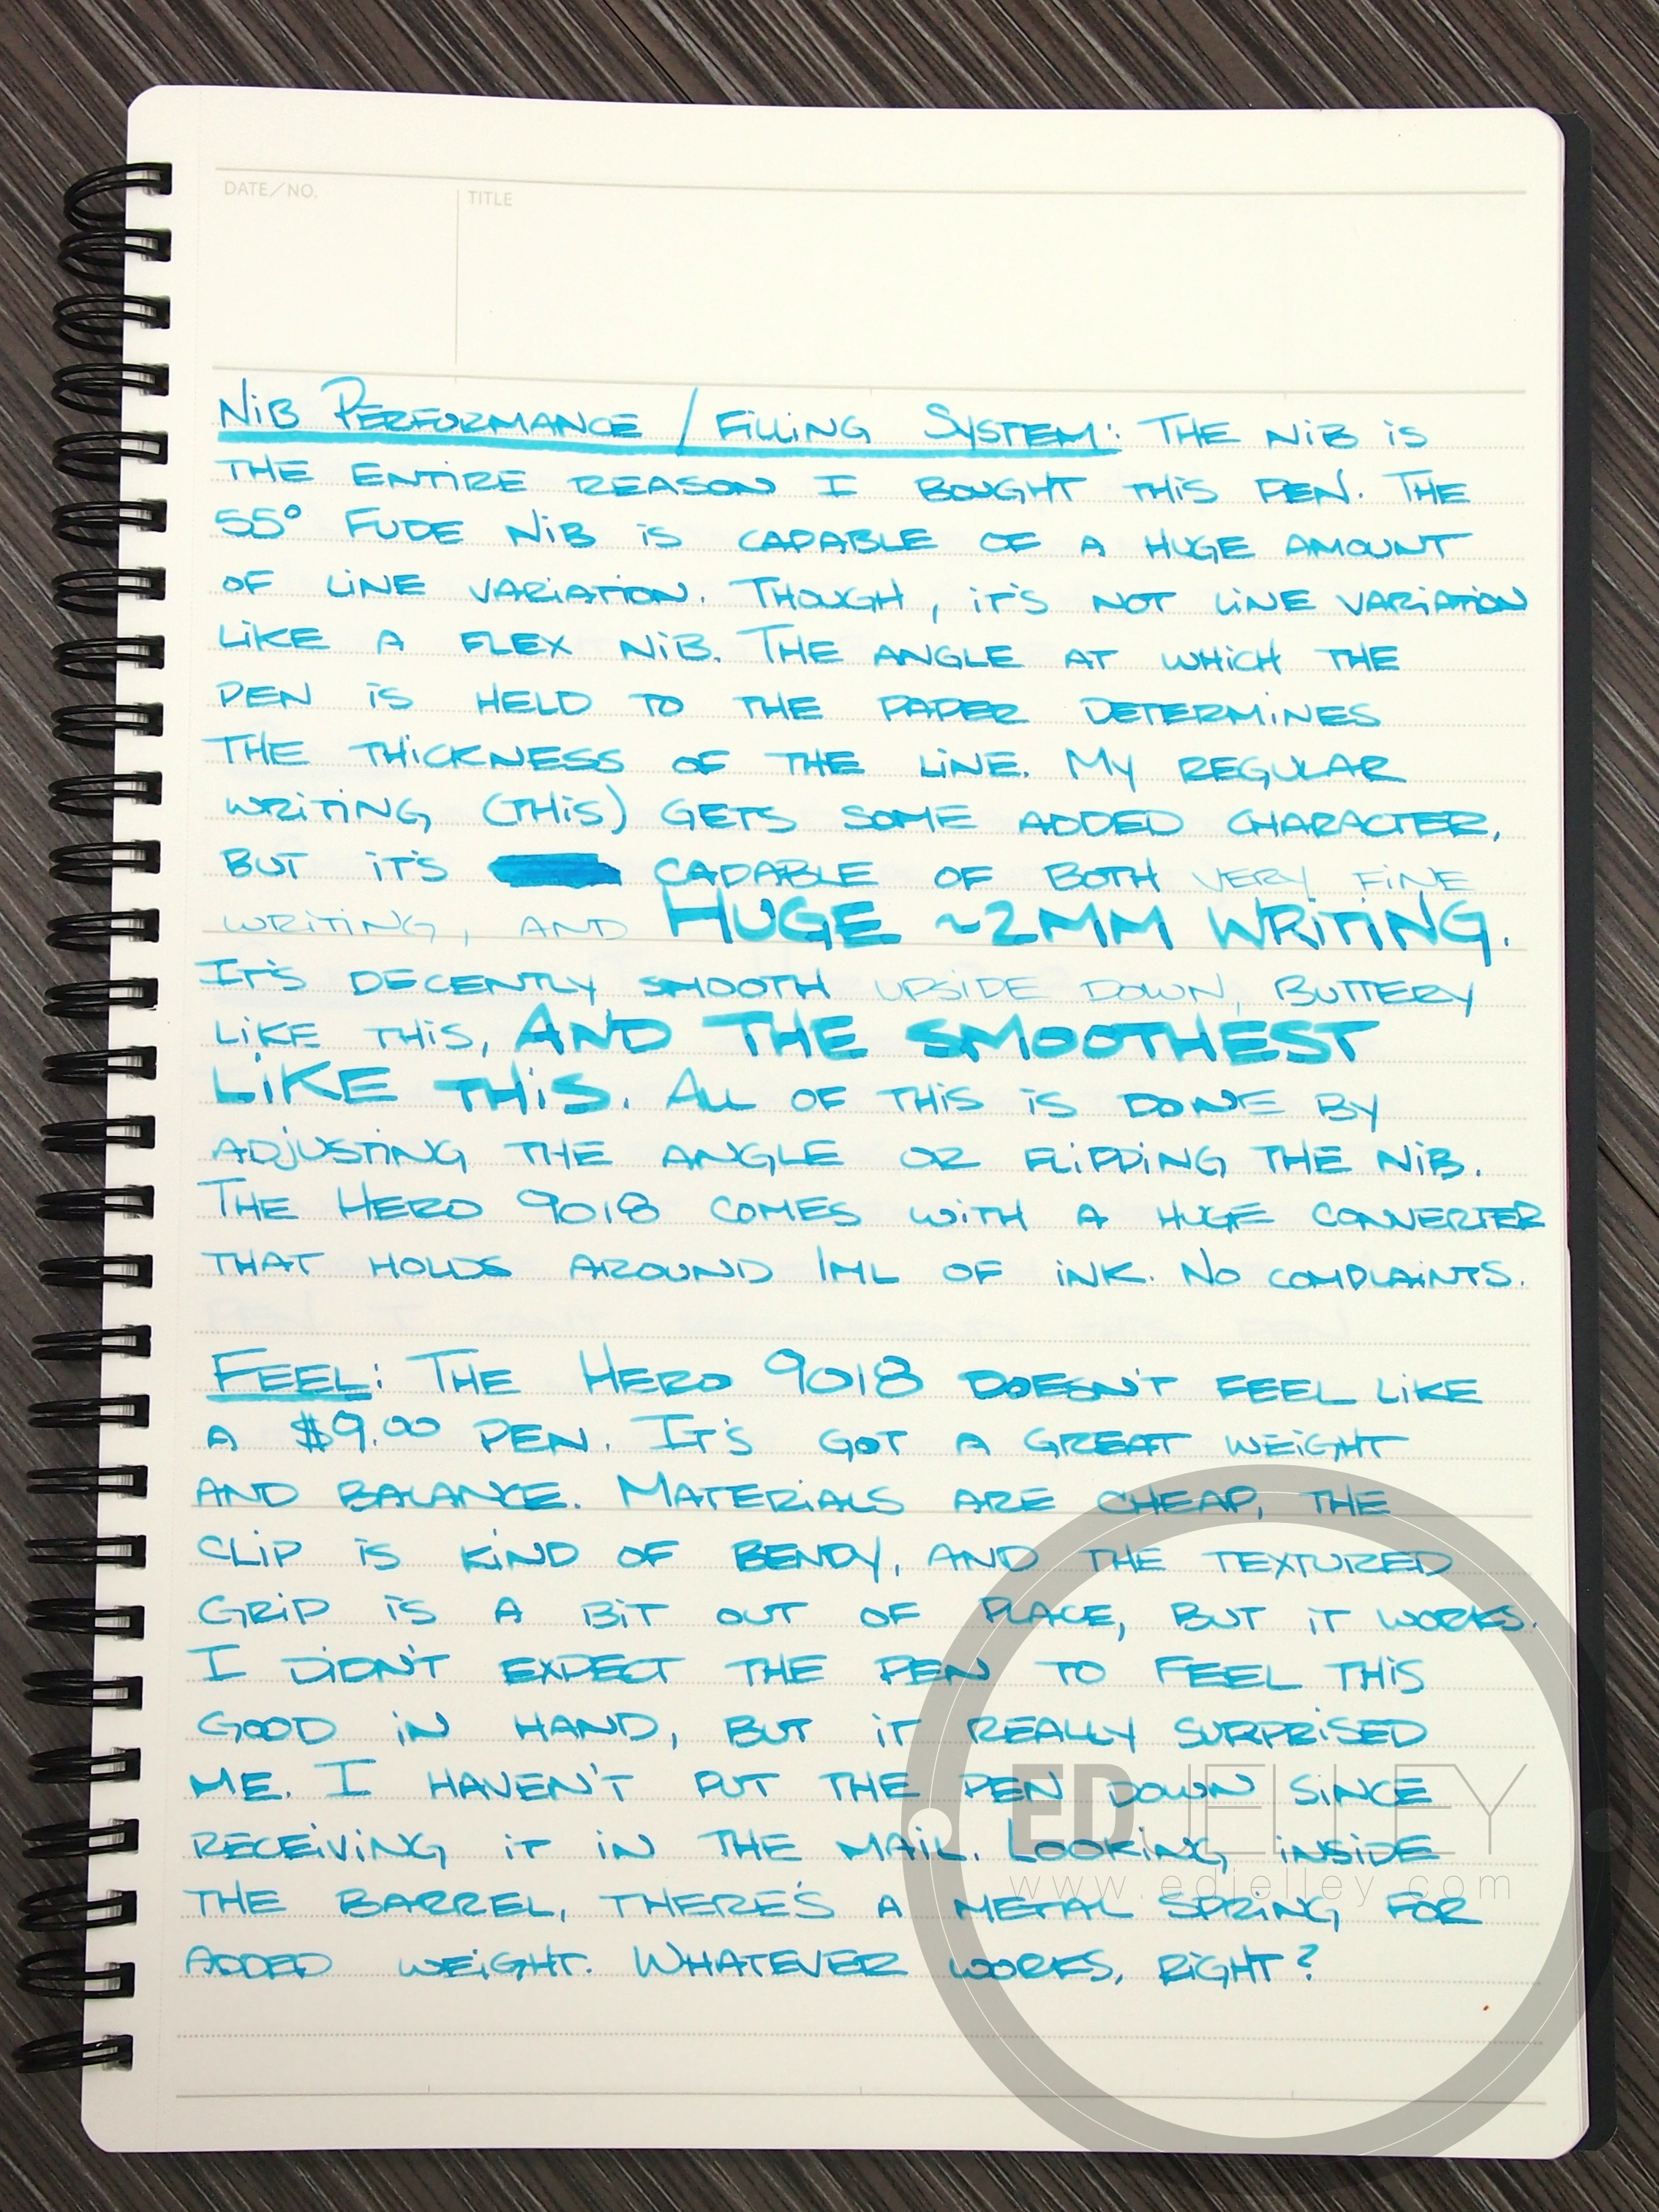 DATE/NO.
TITLE
NiB PERFORMANCE / FiLLiNG SYSTEM: THE NiB iS
THE ENTIRE REASON I BOUGHT THiS PEN. THE
55° FUDE NiB iS CAPABLE OF A HUGE AMOUNT
OF LiNE VARiATiON. THOUGH, iT'S NOT LiNE VARiATiON
LiKE A FLEX NiB. THE ANGLE AT WHiCH THE
PEN iS HELD TO THE PAPER DETERMiNES
THE THiCKNESS OF THE LiNE. MY REGULAR
WRiTiNG (THiS) GETS SOME ADDED CHARACTER,
BUT iT'S CAPABLE OF BOTH VERY FiNE
WRiTiNG, AND HUGE ~2MM WRiTiNG.
IT'S DECENTLY SMOOTH UPSiDE DOWN, BUTTERY
LiKE THiS, AND THE SMOOTHEST
LiKE THiS. ALL OF THiS iS DONE BY
ADJUSTiNG THE ANGLE OR FLiPPiNG THE NiB.
THE HERO 9018 COMES WiTH A HUGE CONVERTER
THAT HOLDS AROUND 1ML OF iNK. NO COMPLAiNTS.
FEEL: THE HERO 9018 DOESN'T FEEL LiKE
A $9.00 PEN. IT'S GOT A GREAT WEiGHT
AND BALANCE. MATERiALS ARE CHEAP, THE
CLiP iS KiND OF BENDY, AND THE TEXTURED
GRiP iS A BiT OUT OF PLACE, BUT iT WORKS.
I DiDN'T EXPECT THE PEN TO FEEL THiS
GOOD iN HAND, BUT iT REALLY SURPRiSED
ME. I HAVEN'T PUT THE PEN DOWN SiNCE
RECEiViNG iT iN THE MAiL. LOOKiNG iNSiDE
THE BARREL, THERE'S A METAL SPRiNG FOR
ADDED WEiGHT. WHATEVER WORKS, RiGHT?
EDJELLEY
www.edjelley.com